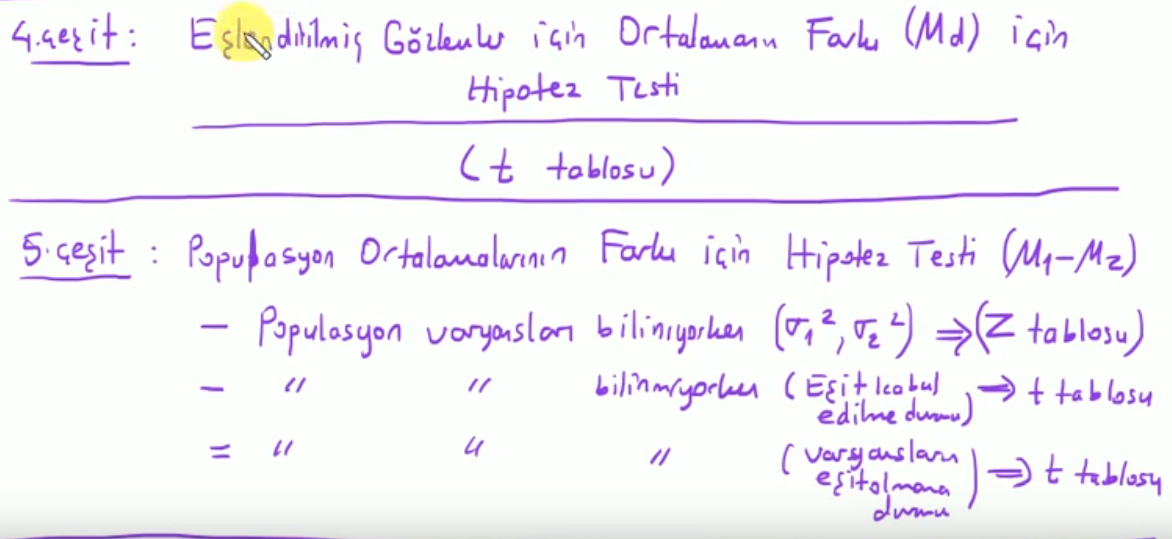 4.çeşit: Eşlendirilmiş Gözlemler için Ortalamanın Farkı (Md) için
Hipotez Testi
(t tablosu)
5.çeşit: Populasyon Ortalamalarının Farkı için Hipotez Testi (M₁-M₂)
- Populasyon varyansları biliniyorken (σ₁², σ₂²) ⇒ (Z tablosu)
- " " bilinmiyorken (Eşit kabul edilme durumu) ⇒ t tablosu
= " " " (varyansların eşit olmama durumu) ⇒ t tablosu